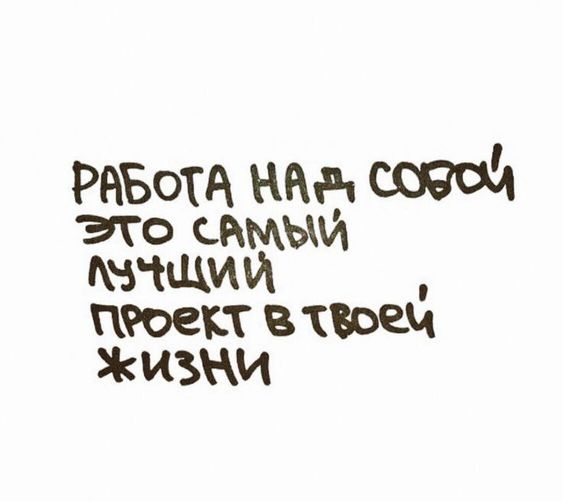 РАБОТА НАД СОБОЙ
ЭТО САМЫЙ
ЛУЧЩИЙ
ПРОЕКТ В ТВОЕЙ
ЖИЗНИ